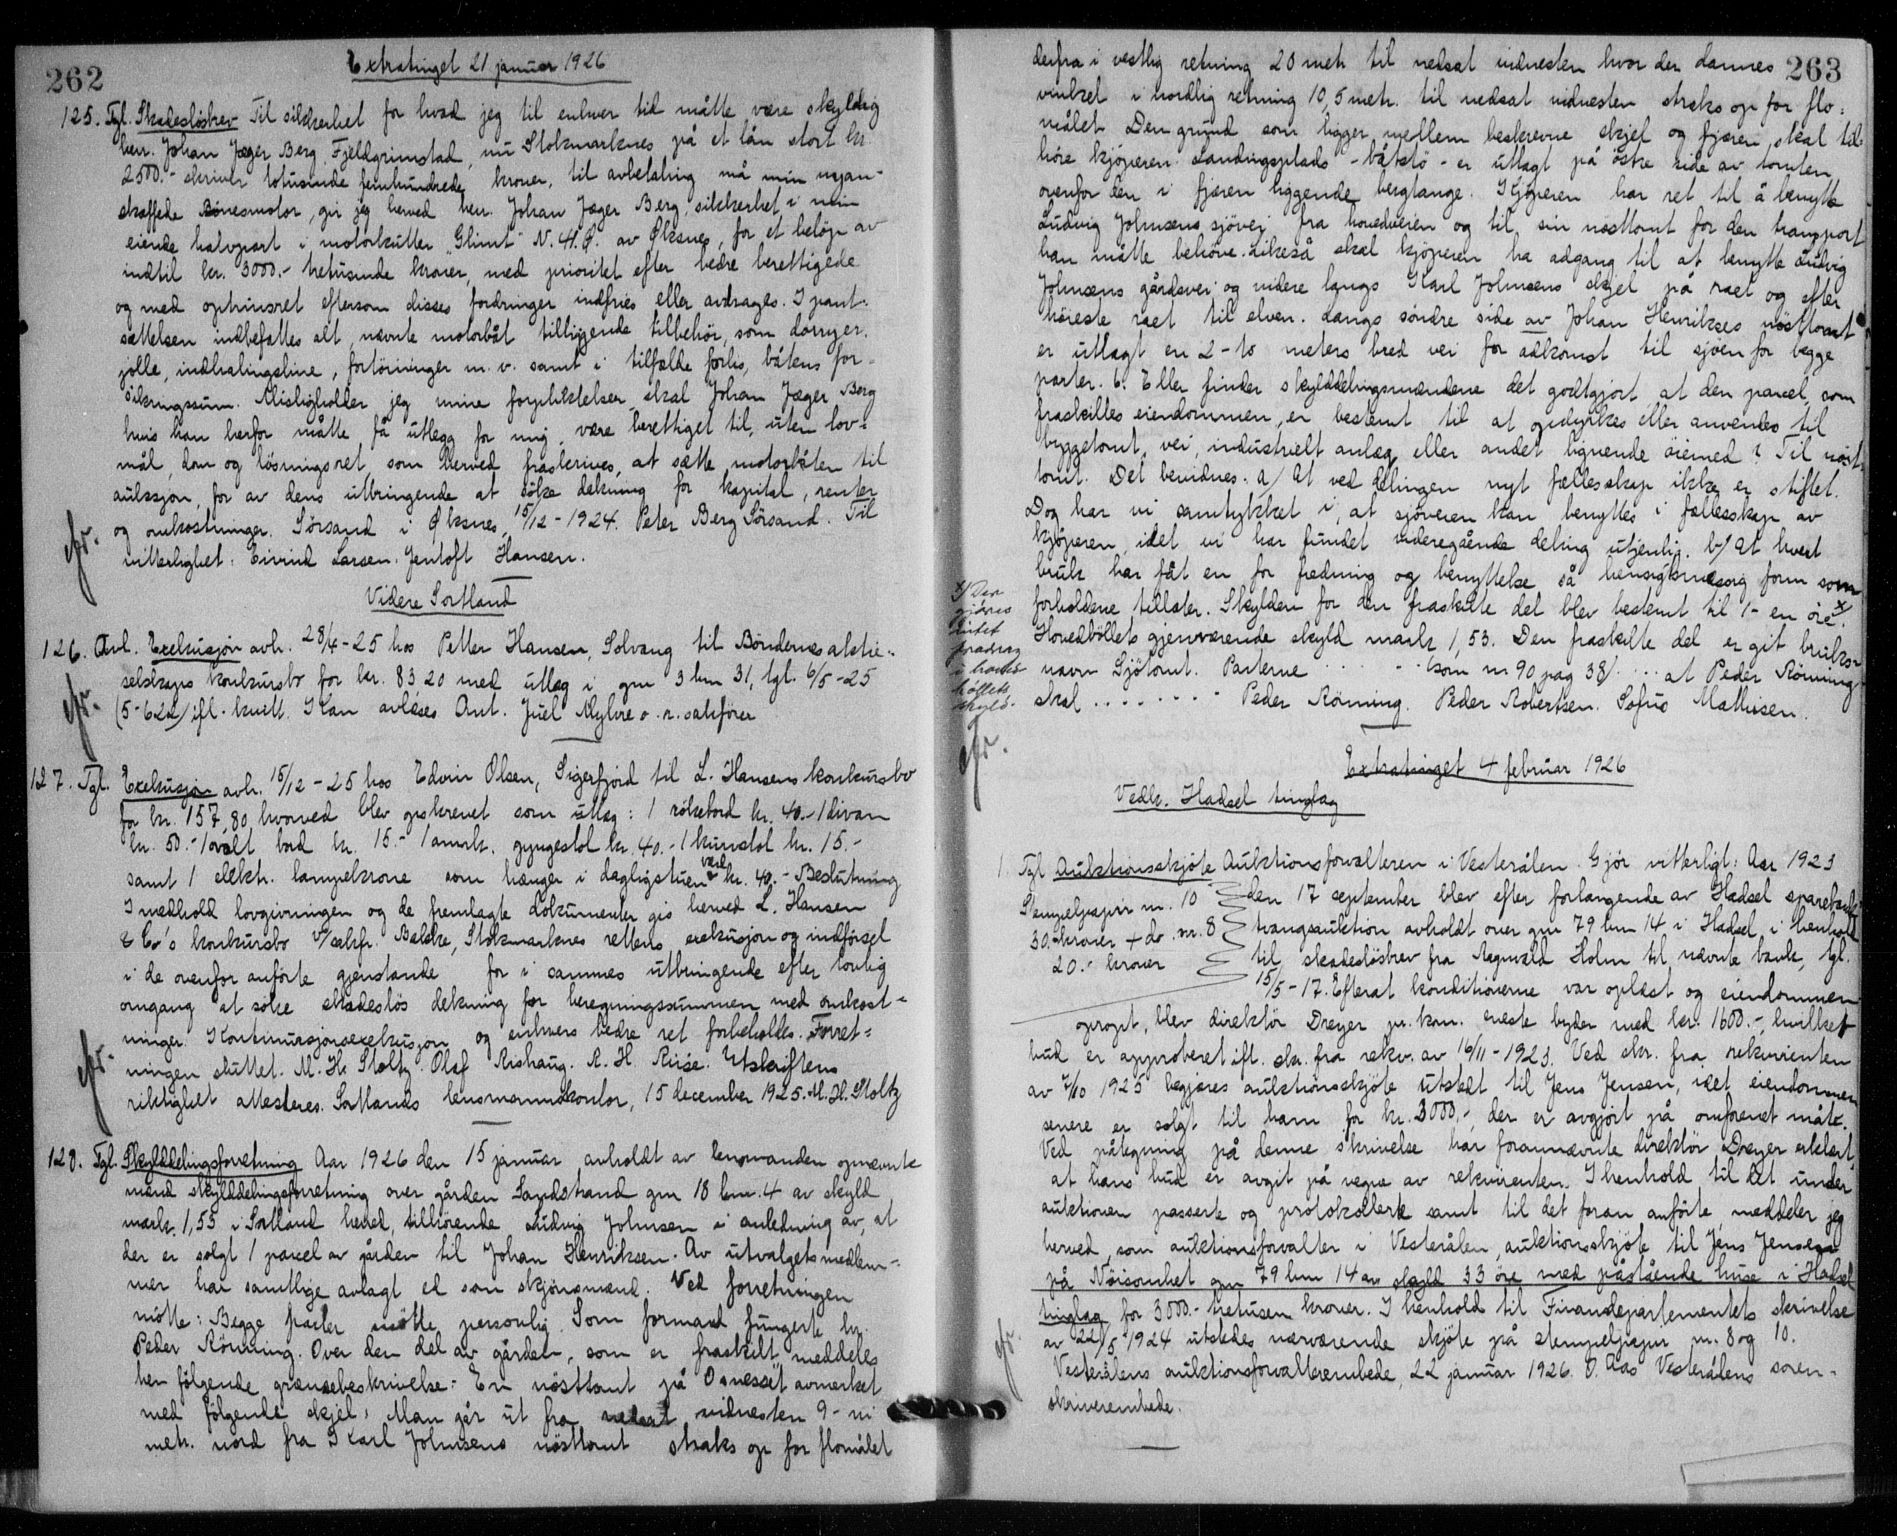 262
Extratinget 21 januar 1926
125. Tgl. Skadesløsbrev Til sikkerhet for hvad jeg til enhver tid måtte være skyldig
herr. Johan Jæger Berg Fjeldgrimstad, nu Stokmarknes på et lån stort kr.
2500.- skriver totusinde femhundrede kroner, til avbetaling på min nyan-
skaffede Bönesmotor, gir jeg herved herr. Johan Jæger Berg sikkerhet i min
eiende halvpart i motorkutter "Glimt" N. 41. Ø. av Øksnes, for et beløp av
indtil kr. 3000.- tretusinde kroner, med prioritet efter bedre berettigede
og med optrinsret eftersom disses fordringer indfries eller avdrages. I pant-
sættelsen indbefattes alt, nævnte motorbåt tilliggende tilbehör, som dorryer,
jolle, indhalingsline, fortöininger m. v. samt i tilfælde forlis, båtens for-
sikringssum. Misligholder jeg mine forpliktelser skal Johan Jæger Berg
hvis han herfor måtte få utlegg for mig, være berettiget til, uten lov-
mål, dom og lösningsret, som herved fraskrives, at sætte motorbåten til
auksjon, for av dens utbringende at söke dekning for kapital, renter
og omkostninger. Sörsand i Øksnes, 15/12-1924. Peter Berg Sörsand. Til
vitterlighet: Eivind Larsen. Jentoft Hansen.
Videre Sortland
126. Avl. Exekusjon avh. 28/4-25 hos Petter Hansen, Solvang til Böndernes aktie-
selskaps konkursbo for kr. 83 20 med utlæg i gnr 3 bnr 31, tgl. 6/5-25
(5-622) ifl. kvitt. Kan avlæses Ant. Juel Mylvre o. r. sakförer
127. Tgl. Exekusjon avh. 15/12-25 hos Edvin Olsen, Sigerfjord til L. Hansens konkursbo
for kr. 157,80, hvorved blev opskrevet som utlæg: 1 rökebord kr. 40.- 1 divan
kr. 50.- 1 ovalt bord kr. 15.- 1 amrk. gyngestol kr. 40.- 1 kurvstol kr. 15.-
samt 1 elektr. lampekrone som hænger i dagligstuen verd kr. 40.- Beslutning
I medhold lovgivningen og de fremlagte dokumenter gis herved L. Hansen
& Co's konkursbo v/sakfr. Bakke, Stokmarknes rettens exekusjon og indförsel
i de ovenfor anförte gjenstande for i sammes utbringende efter lovlig
omgang at söke skadeslös dekning for beregningssummen med omkost-
ninger. Kontinuasjonsexekusjon og enhvers bedre ret forbeholdes. Forret-
ningen sluttet. M. H. Stoltz. Olaf Rishaug. A. H. Riise. Utskriftens
riktighet attesteres. Sortlands lensmannskontor, 15 december 1925. M. H. Stoltz
128. Tgl. Skylddelingsforretning Aar 1926 den 15 januar avholdt av lensmanden opnævnte
mænd skylddelingsforretning over gården Sandstrand gnr 18 bnr. 4 av skyld
mark 1,55 i Sortland herred, tilhörende Ludvig Johnsen i anledning av, at
der er solgt 1 parcel av gården til Johan Henriksen. Av utvalgets medlem-
mer har samtlige avlagt ed som skjönsmænd. Ved forretningen
mötte: Begge parter mötte personlig. Som formand fungerte hr.
Peder Rönning. Over den del av gården, som er fraskilt meddeles
her fölgende grænsebeskrivelse: En nösttomt på Osnesset avmerket
med fölgende skjel: Man går ut fra nedsat vidnesten 9- ni
metr. nord fra Karl Johnsens nösttomt straks op for flomålet
263
derfra i vestlig retning 20 metr til nedsat vidnesten hvor der dannes
vinkel i nordlig retning 10,5 metr. til nedsat vidnesten straks op for flo-
målet. Den grund som ligger mellem beskrevne skjel og fjæren, skal til-
höre kjöperen. Landingsplads - båtstö - er utlagt på östre side av tomten
ovenfor den i fjæren liggende bergtange. Kjöperen har ret til å benytte
Ludvig Johnsens sjövei fra hovedveien og til sin nösttomt for den transport
han måtte behöve. Likeså skal kjöperen ha adgang til at benytte Ludvig
Johnsens gårdsvei og videre langs Karl Johnsens skjel på raet og efter
höieste raet til elven. Langs söndre side av Johan Henrikses nösttomt
er utlagt en 2- to meters bred vei for adkomst til sjöen for begge
parter. 6. Eller finder skylddelingsmændene det godtgjort at den parcel, som
fraskilles eiendommen, er bestemt til at opdyrkes eller anvendes til
byggetomt, vei, industrielt anlæg eller andet lignende öiemed? Til nöst-
tomt. Det bevidnes: a/ At ved delingen nyt fællesskap ikke er stiftet.
Dog har vi samtykket i, at sjöveien kan benyttes i fællesskap av
kjöperen, idet vi har fundet videregående deling utjenlig. b/ At hvert
bruk har fåt en for fredning og benyttelse så hensigtsmæssig form som
forholdene tillater. Skylden for den fraskilte del blev bestemt til 1- en öre. x/
Hovedböllets gjenværende skyld mark 1,53. Den fraskilte del er git bruks-
navn Sjötomt. Parterne . . . . . . (som nr 90 pag 38) . . . at Peder Rönning
skal . . . . . . . Peder Rönning. Peder Robertsen. Sofus Mathisen.
x/ Der
gjöres
intet
fradrag
i hoved-
böllets
skyld.
Extratinget 4 februar 1926
Vedk. Hadsel tinglag
1. Tgl Auktionsskjöte Auktionsforvalteren i Vesterålen. Gjör vitterligt: Aar 1923
Stempelpapir nr. 10 den 17 september blev efter forlangende av Hadsel sparebank
30.- kroner + do. nr. 8 tvangsauktion avholdt over gnr 79 bnr 14 i Hadsel i henhold
20.- kroner til skadeslösbrev fra Ragnvald Holm til nævnte bank, tgl.
15/5-17. Efterat konditionerne var oplæst og eiendommen
opropt, blev direktör Dreyer pr. kom. eneste byder med kr. 1600.-, hvilket
bud er approberet ifl. skr. fra rekv. av 16/11-1923. Ved skr. fra rekvirenten
av 7/10 1925 begjæres auktionsskjöte utstedt til Jens Jensen, idet eiendommen
senere er solgt til ham for kr. 3000.-, der er avgjort på omforenet måte.
Ved påtegning på denne skrivelse har forannævnte direktör Dreyer erklært,
at hans bud er avgit på vegne av rekvirenten. I henhold til det under
auktionen passerte og protokollerte samt til det foran anförte meddeler jeg
herved som auktionsforvalter i Vesterålen auktionsskjöte til Jens Jensen
på Nöisomhet gnr 79 bnr 14 av skyld 33 öre med påstående huse i Hadsel
tinglag for 3000.- tretusen kroner. I henhold til Finansdepartementets skrivelse
av 22/5 1924 utstedes nærværende skjöte på stempelpapir nr. 8 og 10.
Vesterålens auktionsforvalterembede, 22 januar 1926. O. Aas Vesterålens soren-
skriverembede.